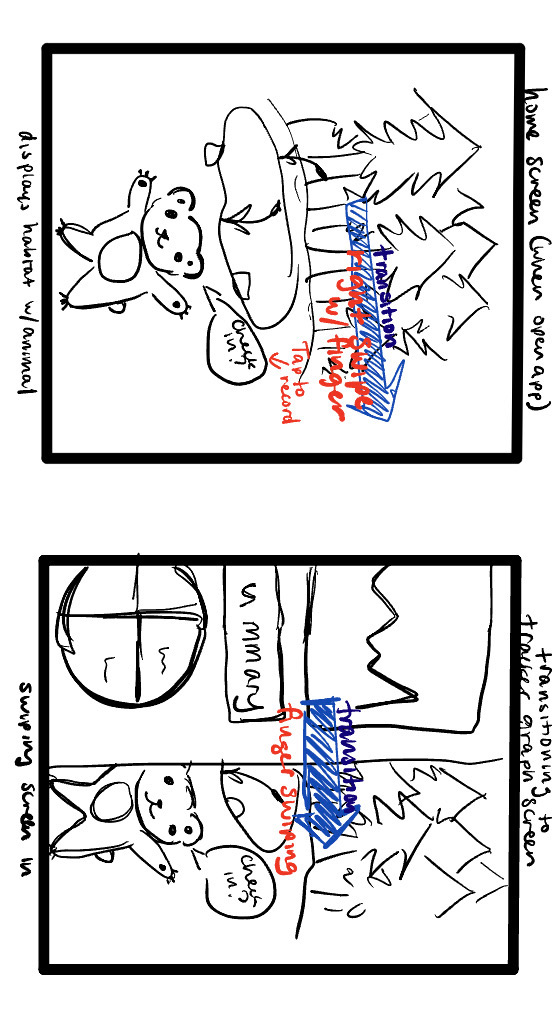 home screen (when open app)
transition
right swipe
w/ finger
Tap to
record
check
in?
displays habitat w/animal
transitioning to
tracker graph screen
transition
finger swiping
summary
check
in?
swiping screen in